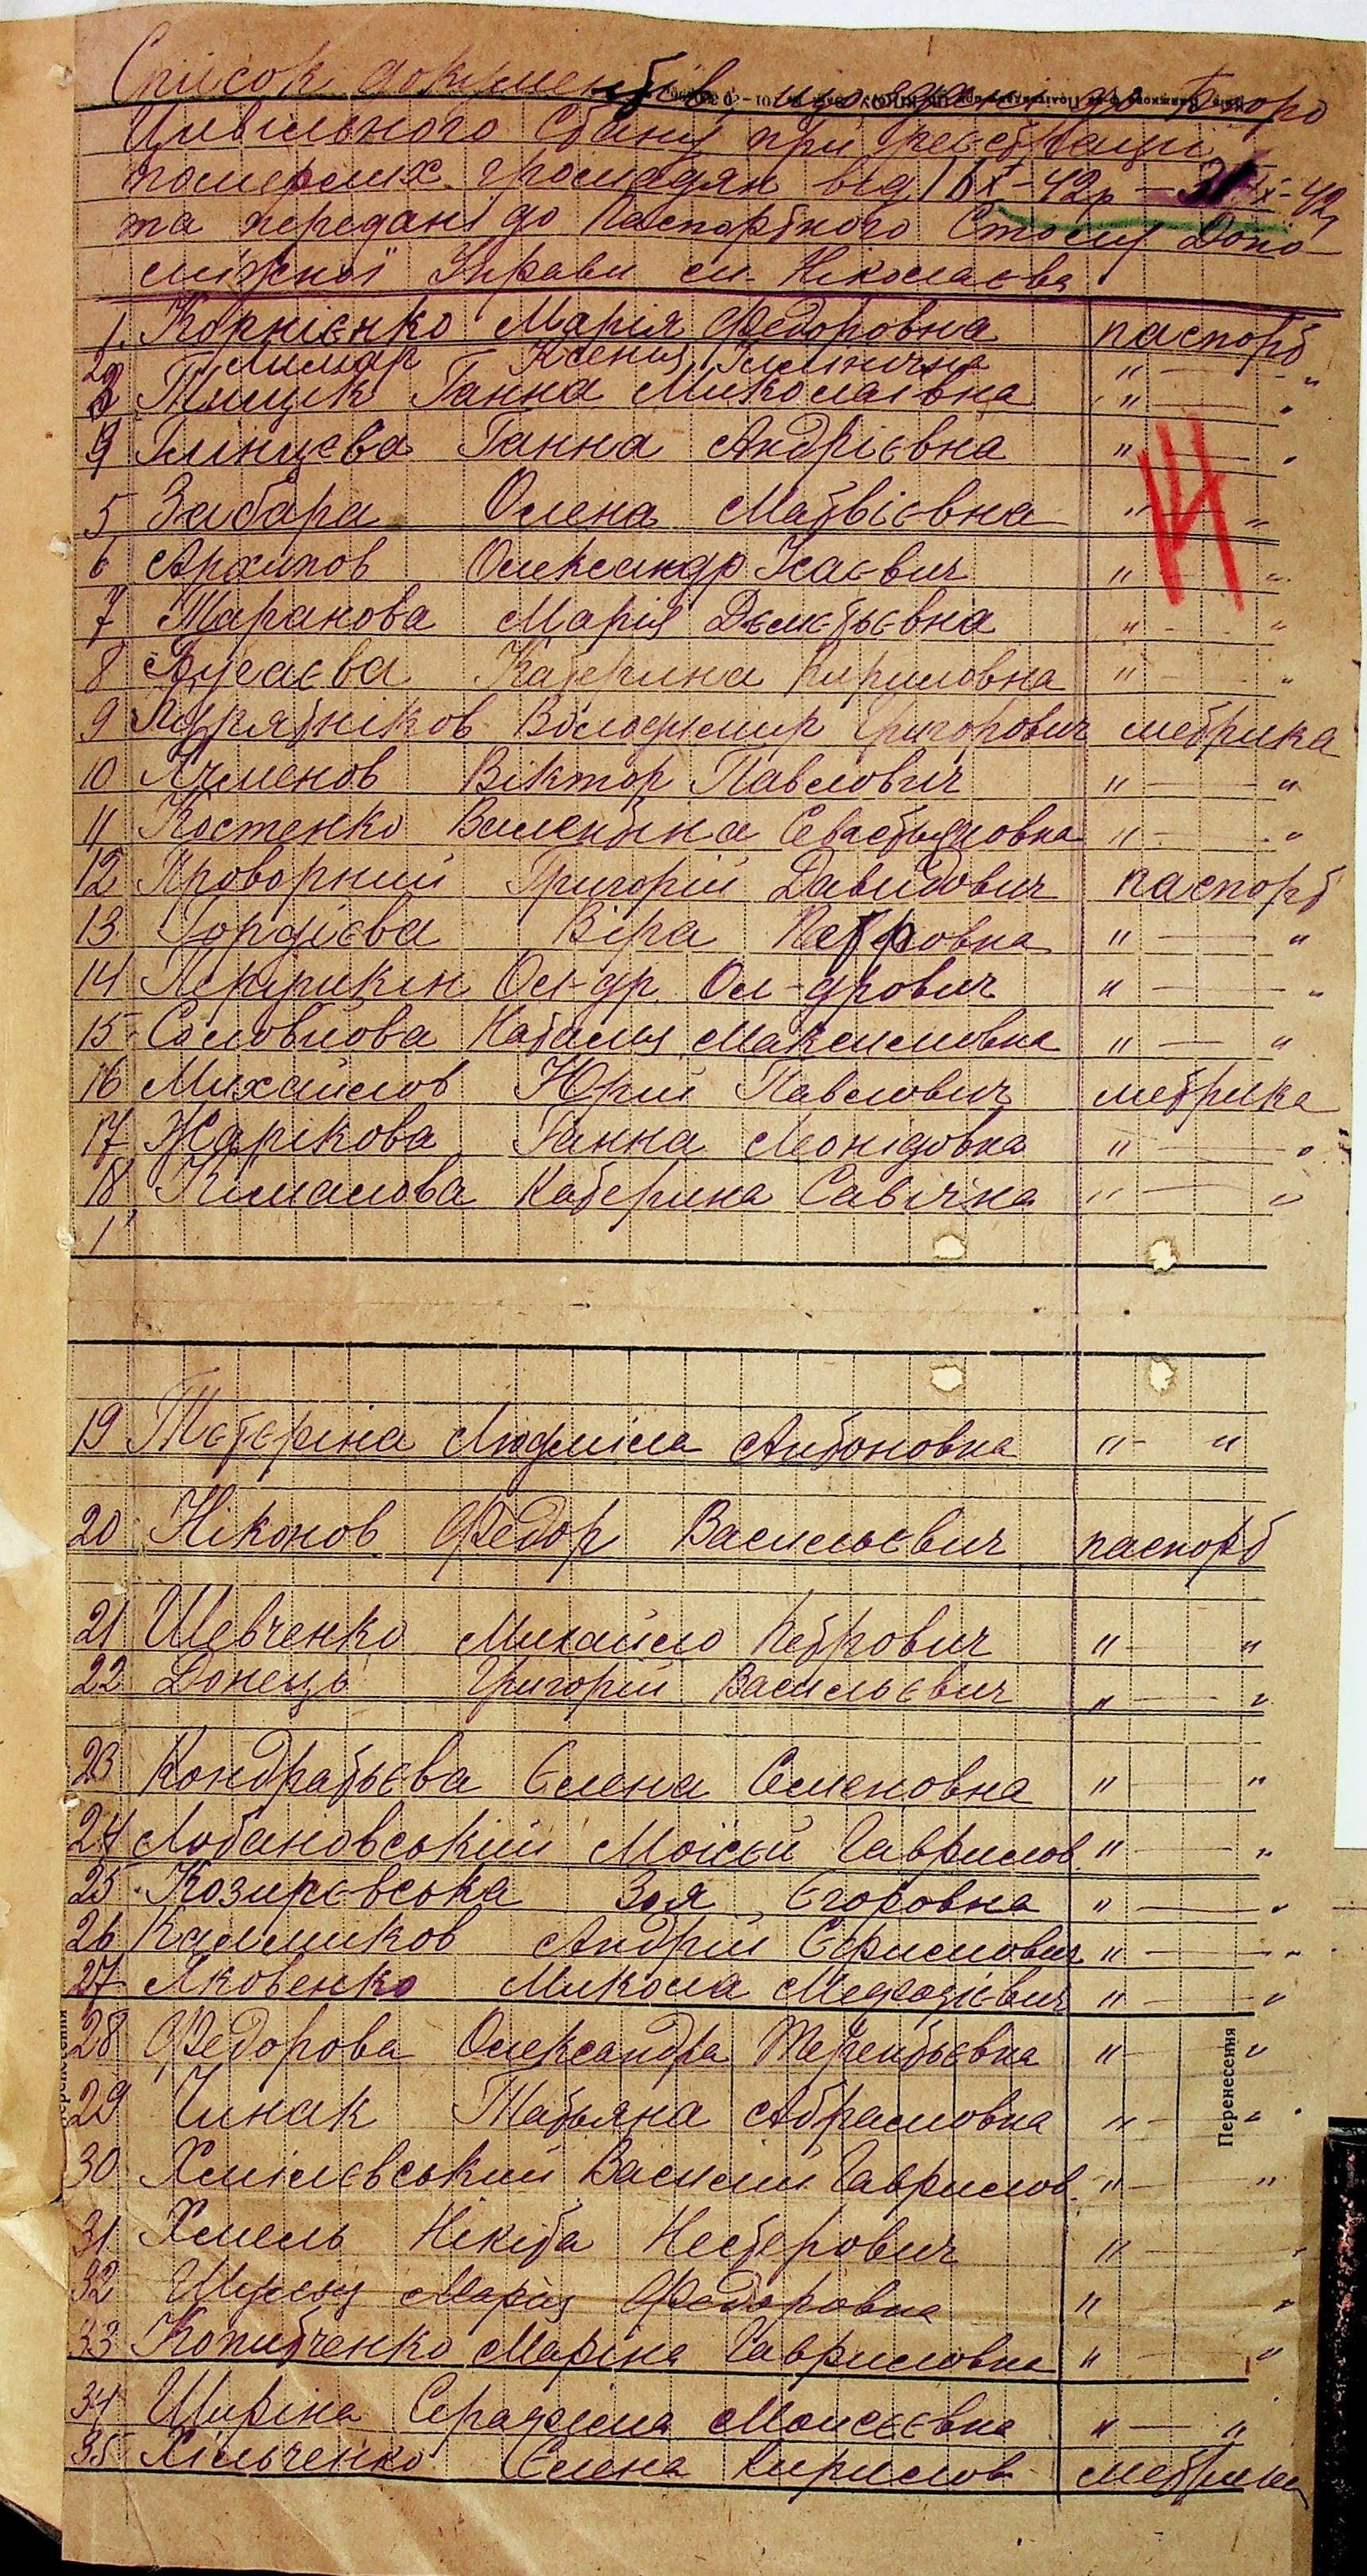 Список документів, що здані до Бюро
Цивільного Стану при реєстрації
померших громадян від 16 X-42р - 31 X-42р
та передані до Паспортного Столу Допо-
міжної Управи м. Ніколаєва
1. Корнієнко Марія Федоровна паспорт
2 Лимар Ксенія Іллінічна " — "
3 Тищик Ганна Миколаївна " — "
4 Глінцева Ганна Андрієвна " — "
5 Забара Олена Матвієвна " — "
6 Архипов Олександр Ісаєвич " — "
7 Таранова Марія Дємєтьєвна " — "
8 Катерина Кириловна " — "
9 Володимир Григорович метрика
10 Ячменов Віктор Павлович " — "
11 Костенко Валентина Севастьяновна " — "
12 Проворний Григорій Давидович паспорт
13 Гордієва Віра Петровна " — "
14 Ол-др Ол-дрович " — "
15 Соловйова Наталія Максимовна " — "
16 Михайлов Юрій Павлович метрика
17 Жарікова Ганна Леонідовна " — "
18 Кімалова Катерина Савічна " — "
1
19 Тєтєріна Людміла Антоновна " - "
20 Ніконов Федор Васильєвич паспорт
21 Шевченко Михайло Петрович " — "
22 Донець Григорій Васильєвич " — "
23 Кондратьєва Єлена Семеновна " — "
24 Лобановський Мойсей Гаврилов. " — "
25 Козирєвська Зоя Єгоровна " — "
26 Калмиков Андрій Єфимович " — "
27 Яковенко Микола Мефодієвич " — "
28 Федорова Олександра Терентьєвна " — "
29 Чинак Татьяна Абрамовна " — "
30 Хмілєвський Василий Гаврилов. " — "
31 Хмель Нікіта Нестерович " — "
32 Марія Федоровна " — "
33 Копитченко Маріна Гавриловна " — "
34 Ширіна Серафима Моисєєвна " — "
35 Хільченко Єлена Кирилов метрика
Перенесення